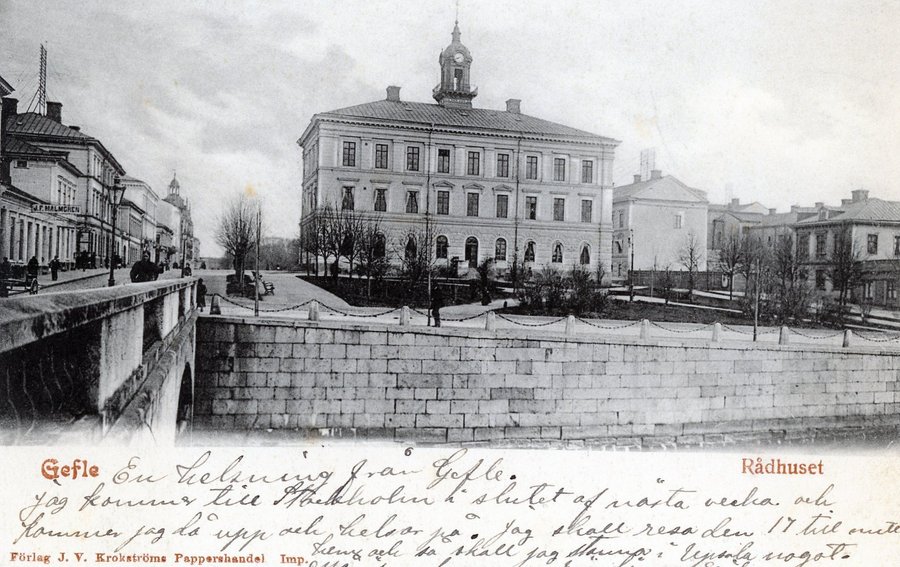 J.F. MALMGREN
Gefle
Rådhuset
En helsning från Gefle.
jag kommer till Stockholm i slutet af nästa vecka och
kommer jag då upp och helsar på. jag skall resa den 17 till
och så skall jag stanna i Upsala något
Förlag J. V. Krokströms Pappershandel Imp.